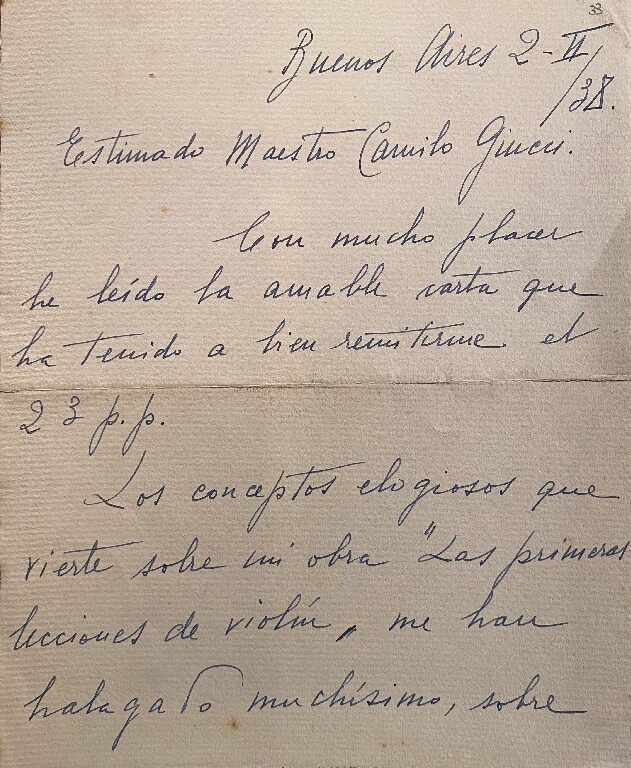 33
Buenos Aires 2-II/38.
Estimado Maestro Camilo Giucci.
Con mucho placer
he leído la amable carta que
ha tenido a bien remitirme el
23 p.p.
Los conceptos elogiosos que
vierte sobre mi obra "Las primeras
lecciones de violín", me han
halagado muchísimo, sobre